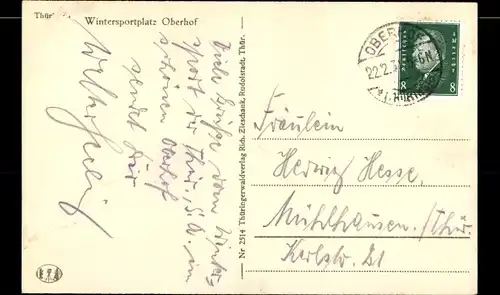 Thür
Wintersportplatz Oberhof
Viele Grüße vom Winter=
sport der Thür. S.A. im
schönen Oberhof
sendet Dir
Walter
Nr 2514 Thüringerwaldverlag Rich. Zieschank, Rudolstadt, Thür.
OBERH
22.2.3
8 8
Fräulein
Hedwig Hesse,
Mühlhausen./Thür.
Karlstr. 21